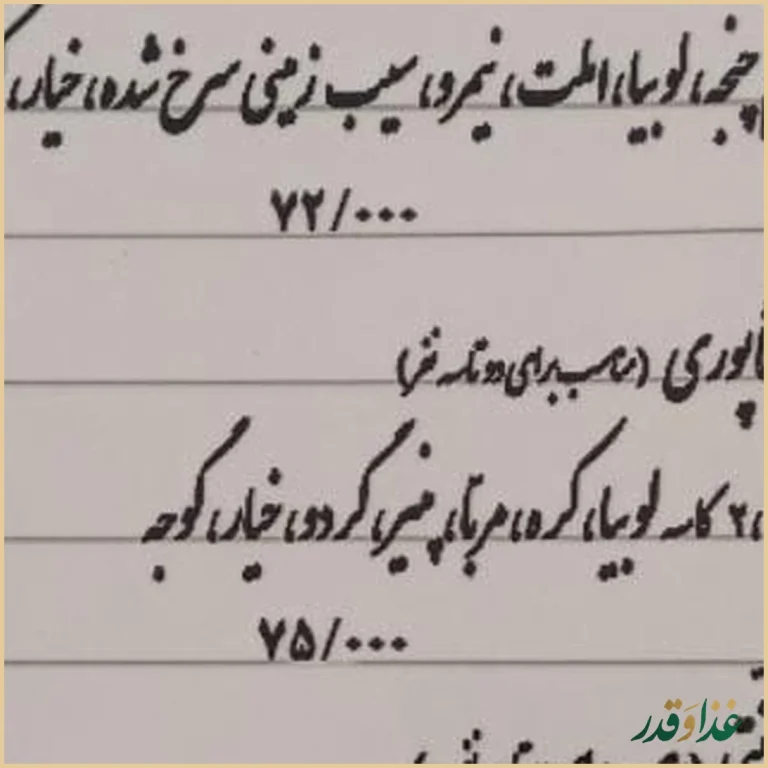 لوبیا، املت، نیمرو، سیب زمینی سرخ شده، خیار،
۷۲/۰۰۰
(مناسب برای دو تا سه نفر)
، ۲ کاسه لوبیا، کره، مربا، پنیر، گردو، خیار، گوجه
۷۵/۰۰۰
غذا و قدر